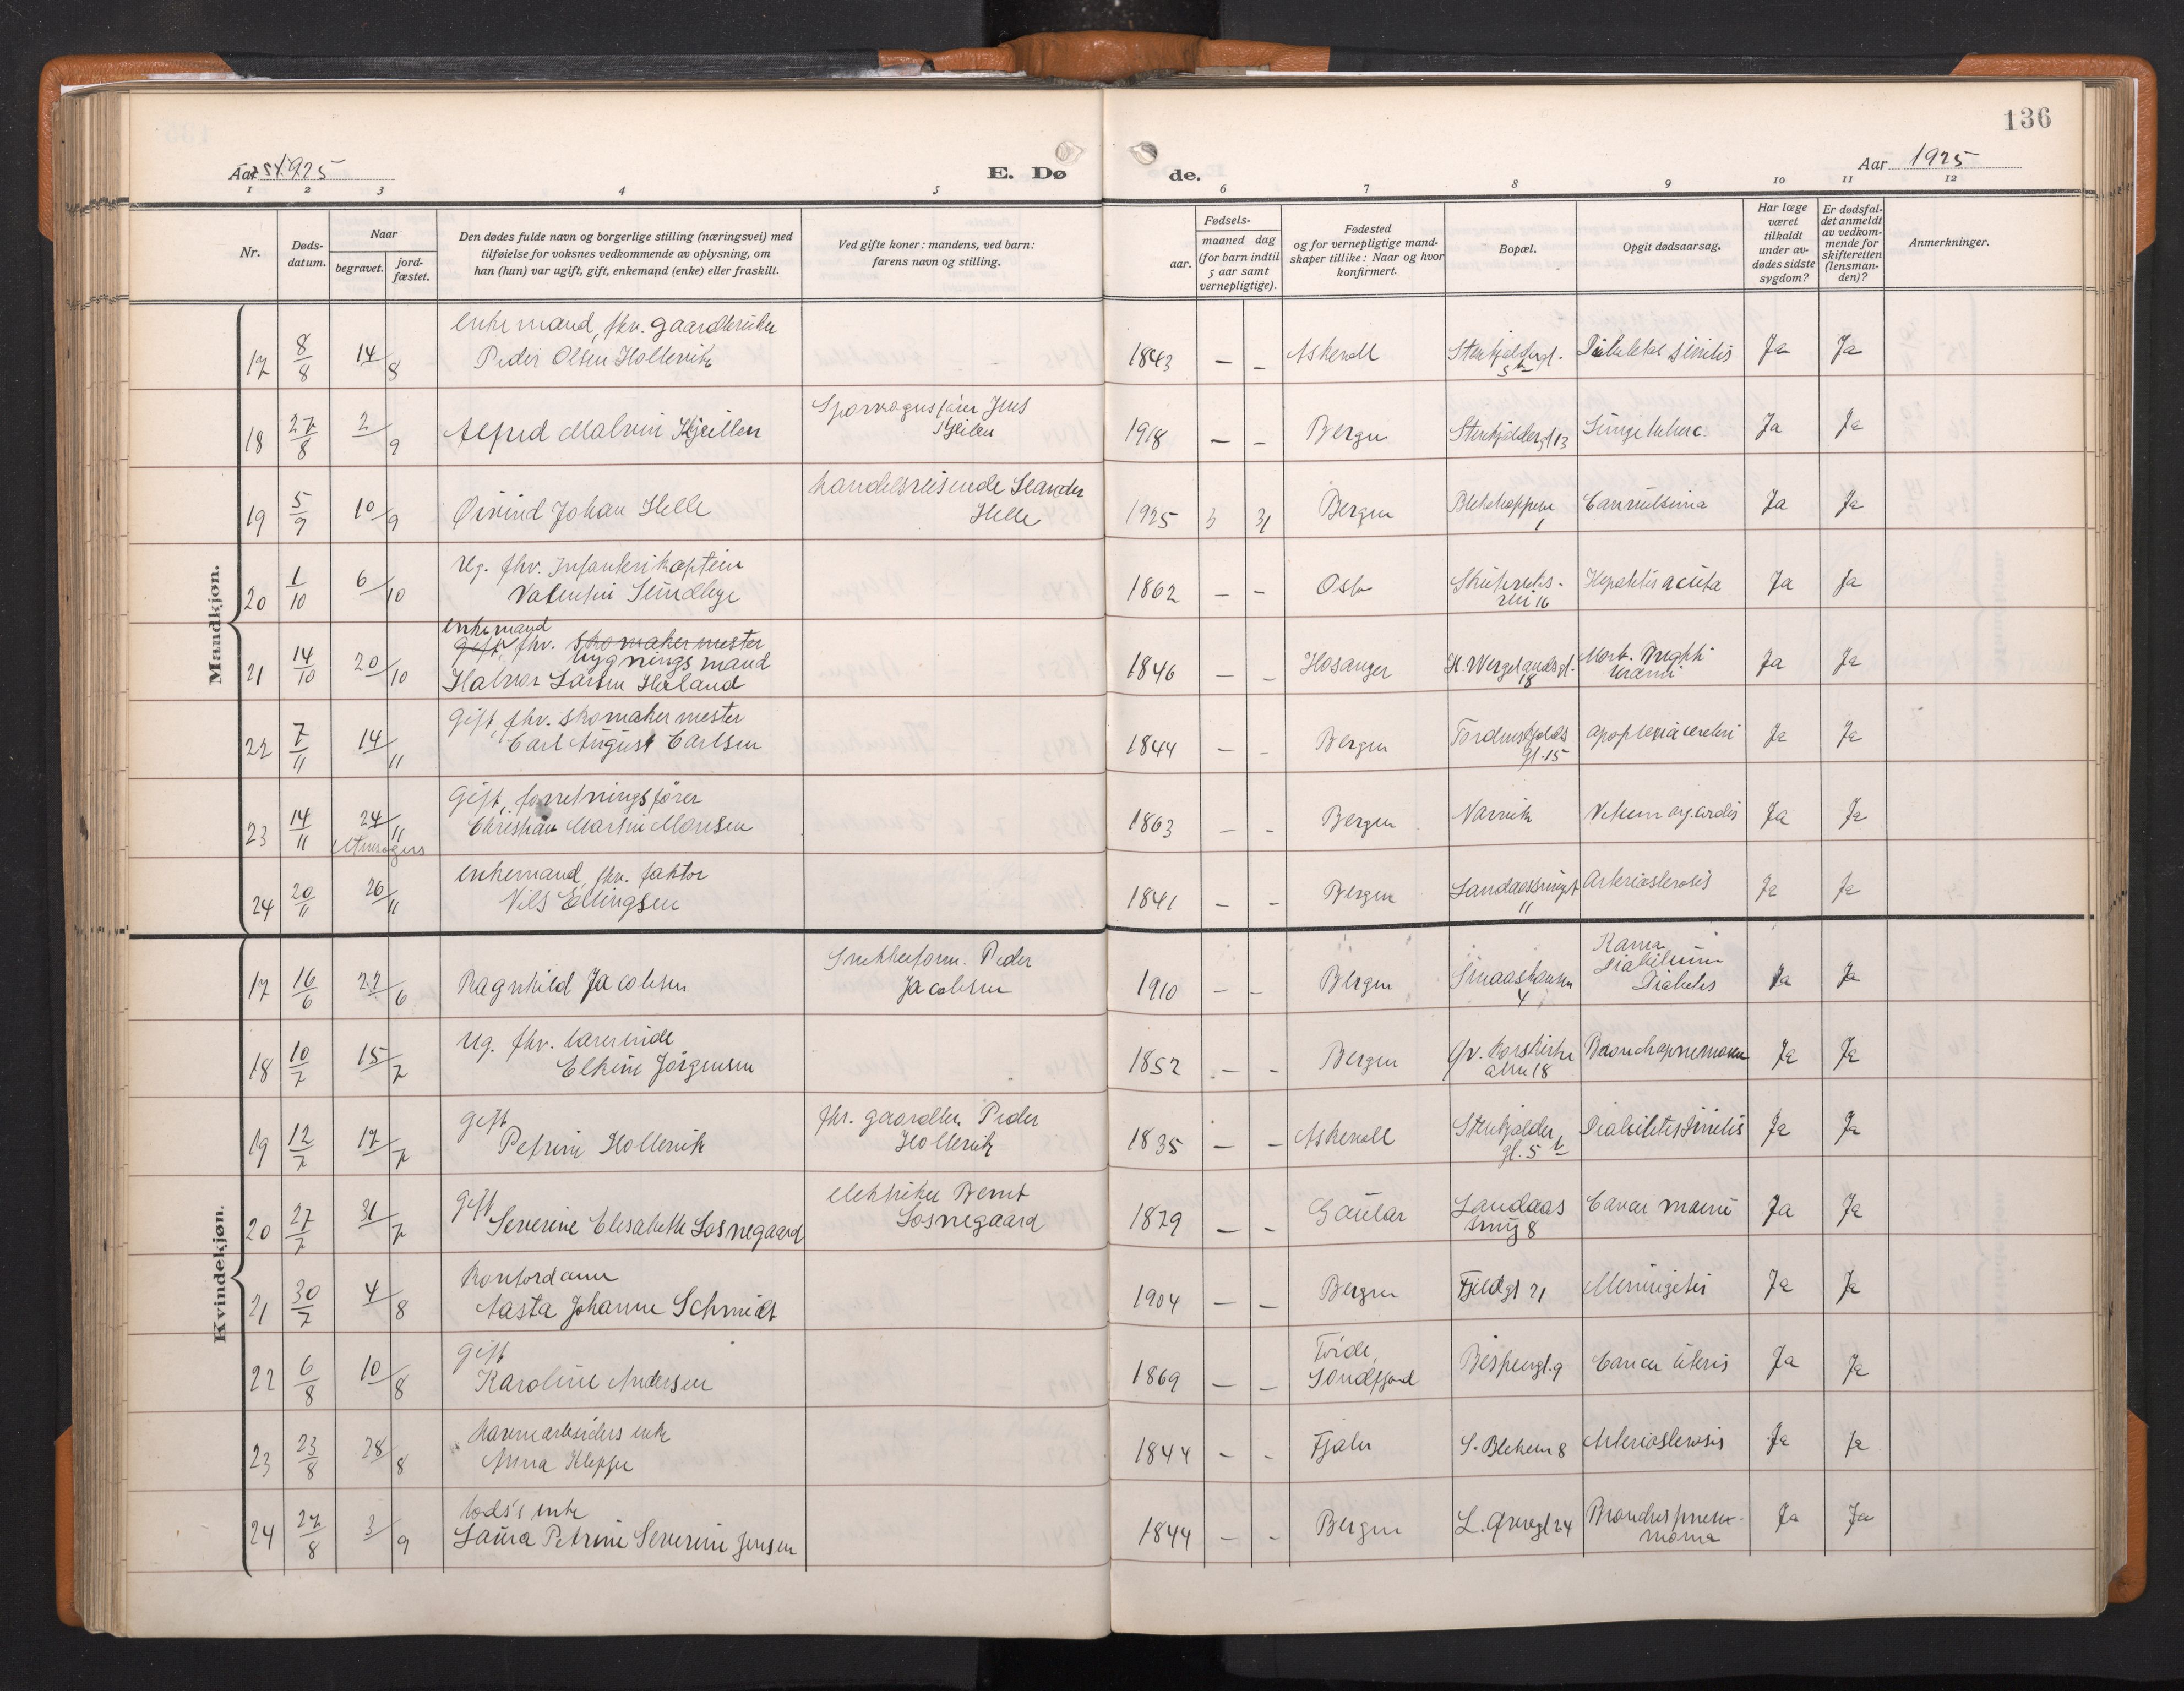 136
Aar 1925
E. Dø
de.
Aar 1925
1 2 3 4 5 6 7 8 9 10 11 12
Nr.
Døds-
datum.
Naar
begravet.
jord-
fæstet.
Den dødes fulde navn og borgerlige stilling (næringsvei) med
tilføielse for voksnes vedkommende av oplysning, om
han (hun) var ugift, gift, enkemand (enke) eller fraskilt.
Ved gifte koner: mandens, ved barn:
farens navn og stilling.
Fødsels-
aar.
maaned dag
(for barn indtil
5 aar samt
vernepligtige).
Fødested
og for vernepligtige mand-
skaper tillike: Naar og hvor
konfirmert.
Bopæl.
Opgit dødsaarsag.
Har læge
været
tilkaldt
under av-
dødes sidste
sygdom?
Er dødsfal-
det anmeldt
av vedkom-
mende for
skifteretten
(lensman-
den)?
Anmerkninger.
Mandkjøn.
enkemand, fhv. gaardbruker
17 8/8 14/8 Peder Olsen Hollevik 1843 — — Askevoll Stenkjeldergt. 5b Ja Ja
Sporvognsfører Jens
18 27/8 2/9 Alfred Malvin Kjeillen 1918 — — Bergen Stenkjeldergt 13 Lungetuberc. Ja Ja
handelsreisende
Helle
19 5/9 10/9 Øivind Johan Helle 1925 3 31 Bergen 1 Ja Ja
Ug. fhv. Infanterikaptein
20 1/10 6/10 Valentin 1862 — — Oslo 16 Hepatitis acuta Ja Ja
enkemand
gift, fhv. skomakermester
bygningsmand
21 14/10 20/10 Halvor Larsen 1846 — — Hosanger H. Wergelandsgt. 18 Morb. Brightii Ja Ja
Gift, fhv. skomakermester
22 7/11 14/11 Carl August Carlsen 1844 — — Bergen Tordenskjolds gt. 15 apoplexia cerebri Ja Ja
Gift, forretningsfører
23 14/11 24/11 Christian Martin Monsen 1863 — — Bergen Ja Ja
enkemand, fhv. faktor
24 20/11 26/11 Nils Ellingsen 1841 — — Bergen 11 Arteriosclerosis Ja Ja
Kvindekjøn.
Snekkerform. Peder
Jacobsen
17 16/6 22/6 Ragnhild Jacobsen 1910 — — Bergen 4 Diabetes Ja Ja
Ug. fhv. lærerinde
18 10/7 15/7 Elkine Jørgensen 1852 — — Bergen 18 Ja Ja
gift
fhv. gaardbr. Peder
Hollevik
19 12/7 17/7 Petrine Hollevik 1835 — — Askevoll Stenkjelder gt. 5b Ja Ja
gift
elektriker Bernt
Losnegaard
20 27/7 31/7 Severine Elisabeth Losnegaard 1879 — — Gaular Landaas smug 8 Ja Ja
Kontordame
21 30/7 4/8 Aasta Johanne Schmidt 1904 — — Bergen Fjeldgt 21 Meningitis Ja Ja
gift
22 6/8 10/8 Karoline Andersen 1869 — — Førde, Søndfjord Bispengt. 9 Cancer uteris Ja Ja
Havnearbeiders enke
23 23/8 28/8 Anna Kleppe 1844 — — Fjaler S. Blekevei 8 Arteriosclerosis Ja Ja
lods's enke
24 27/8 3/9 Laura Petrine Severine Jensen 1844 — — Bergen L. Øvregt 24 Ja Ja